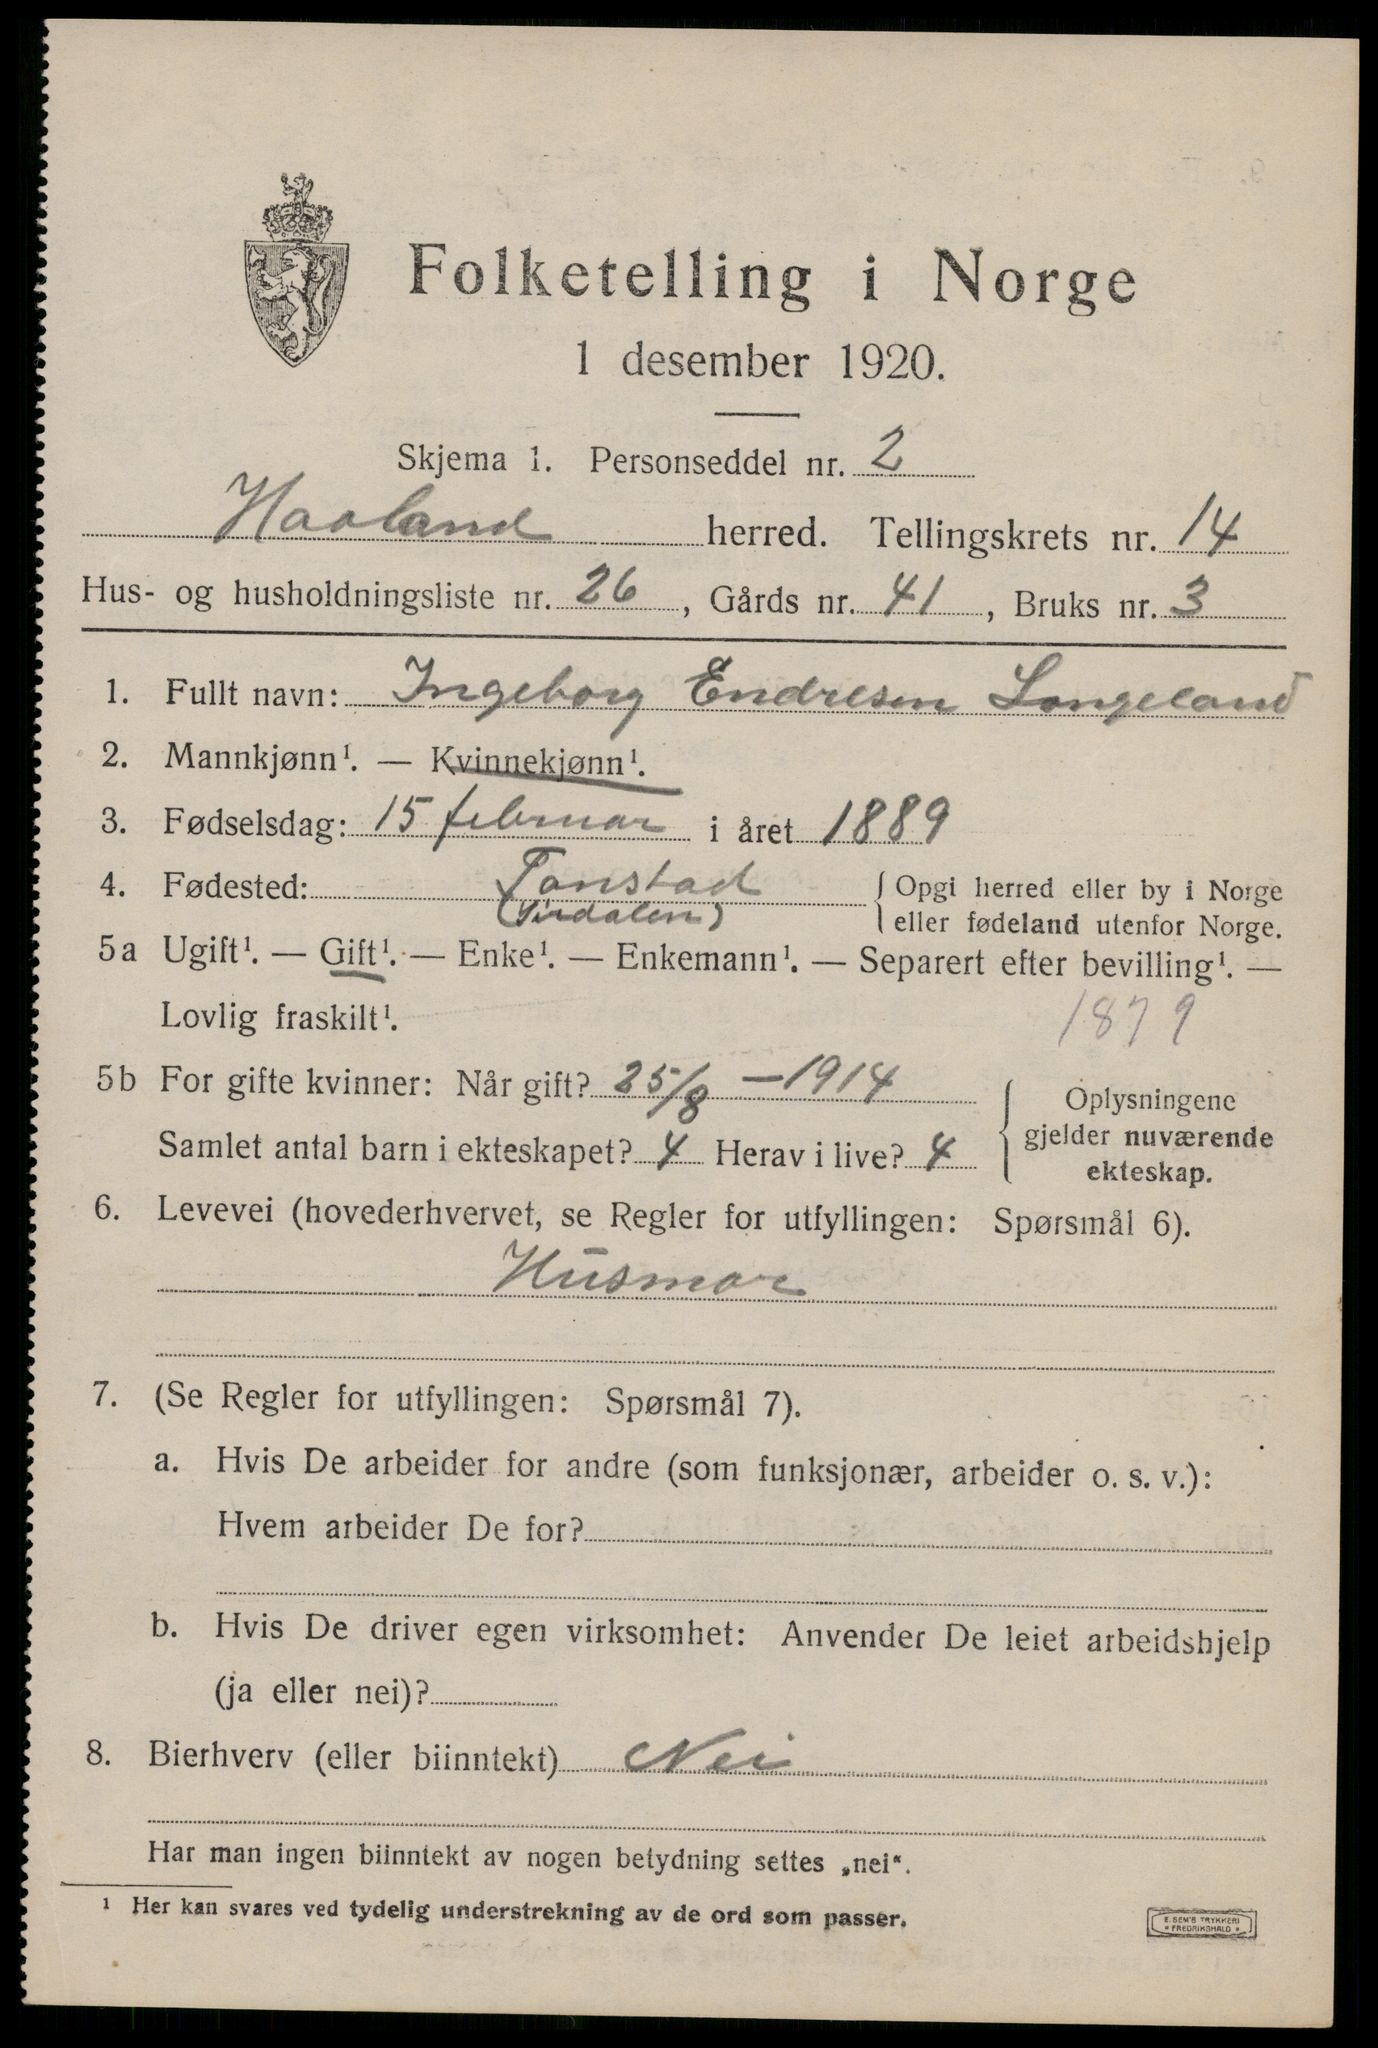 Folketelling i Norge
1 desember 1920.
Skjema 1. Personseddel nr. 2
Haaland herred. Tellingskrets nr. 14
Hus- og husholdningsliste nr. 26, Gårds nr. 41, Bruks nr. 3
1. Fullt navn: Ingeborg Endresen Longeland
2. Mannkjønn¹. — Kvinnekjønn¹.
3. Fødselsdag: 15 februar i året 1889
4. Fødested: Tonstad {Opgi herred eller by i Norge
(Sirdalen) eller fødeland utenfor Norge.
5a Ugift¹. — Gift¹. — Enke¹. — Enkemann¹. — Separert efter bevilling¹. —
Lovlig fraskilt¹. 1879
5b For gifte kvinner: Når gift? 25/8 — 1914
Samlet antal barn i ekteskapet? 4 Herav i live? 4
{Oplysningene
gjelder nuværende
ekteskap.
6. Levevei (hovederhvervet, se Regler for utfyllingen: Spørsmål 6).
Husmor
7. (Se Regler for utfyllingen: Spørsmål 7).
a. Hvis De arbeider for andre (som funksjonær, arbeider o. s. v.):
Hvem arbeider De for?
b. Hvis De driver egen virksomhet: Anvender De leiet arbeidshjelp
(ja eller nei)?
8. Bierhverv (eller biinntekt) Nei
Har man ingen biinntekt av nogen betydning settes „nei“.
¹ Her kan svares ved tydelig understrekning av de ord som passer.
E. SEM'S TRYKKERI
* FREDRIKSHALD *